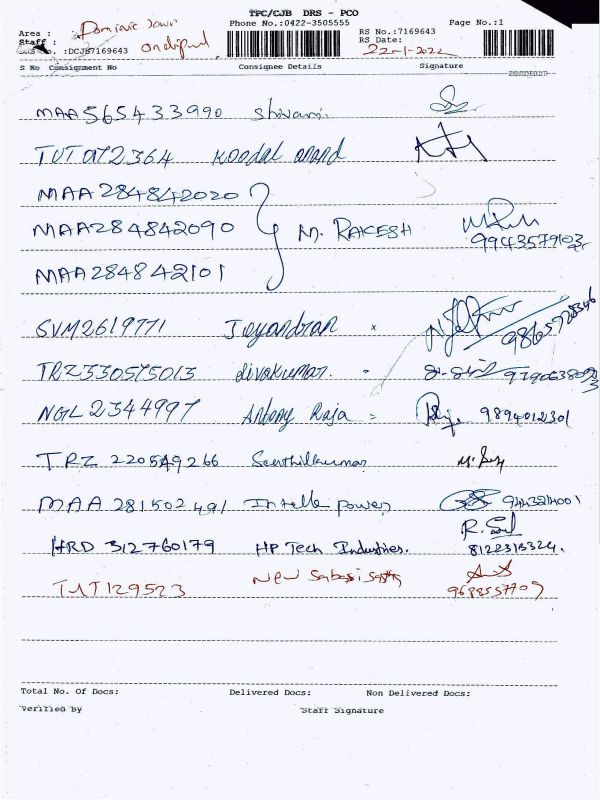 TPC/CJB DRS - PCO
Area : Phone No.:0422-3505555 Page No.:1
Staff : RS No.:7169643
:DCJB7169643 RS Date: 22-1-2022
S No Consignment No Consignee Details Signature
MAA565433990 Shivani
TUT072364 Koodal anand
MAA284842020
MAA284842090 M. RAKESH 9943579103
MAA284842101
SVM2619771 9865728346
TRZ330575013 Sivakumar
NGL2344997 Antony Raja 9894012301
TRZ 220549266 Senthilkumar
MAA 281502491 Intelle power 9443214001
HRD 312760179 HP Tech Industries. 8122313324.
TUT129523 New
Total No. Of Docs: Delivered Docs: Non Delivered Docs:
Verified By Staff Signature